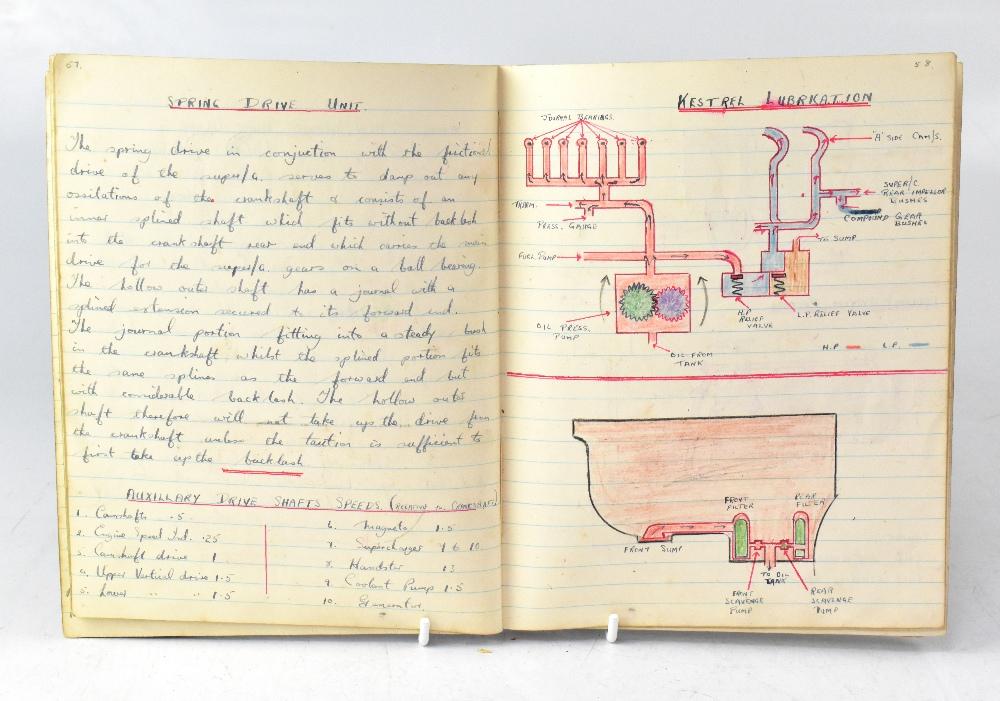 57.
SPRING DRIVE UNIT.
The spring drive in conjuction with the frictional
drive of the super/c. serves to damp out any
ossilations of the crankshaft & consists of an
inner splined shaft which fits without backlash
into the crankshaft rear end which carries the main
drive for the super/c. gears on a ball bearing.
The hollow outer shaft has a journal with a
splined extension secured to its forward end.
The journal portion fitting into a steady bush
in the crankshaft whilst the splined portion fits
the same splines as the forward end but
with considerable backlash. The hollow outer
shaft therefore will not take up the drive from
the crankshaft unless the is sufficient to
first take up the backlash
AUXILLARY DRIVE SHAFTS SPEEDS. (RELATIVE TO CRANKSHAFT)
1. Camshafts .5
2. Engine Speed Ind. .25
3. Camshaft drive 1
4. Upper Vertical drive 1.5
5. Lower " " 1.5
6. Magneto 1.5
7. Supercharger
8. Handstar
9. Coolant Pump 1.5
10. Generator.
58.
KESTREL LUBRICATION
JOURNAL BEARINGS.
'A' SIDE CAM/S.
SUPER/C.
REAR IMPELLOR
BUSHES
COMPOUND GEAR
BUSHES
THERM.
PRESS. GAUGE
TO SUMP
FUEL PUMP
H.P
RELIEF
VALVE
L.P. RELIEF VALVE
OIL PRESS.
PUMP
OIL FROM
TANK
H.P L.P.
FRONT
FILTER
REAR
FILTER
FRONT SUMP
TO OIL
TANK
FRONT
SCAVENGE
PUMP
REAR
SCAVENGE
PUMP